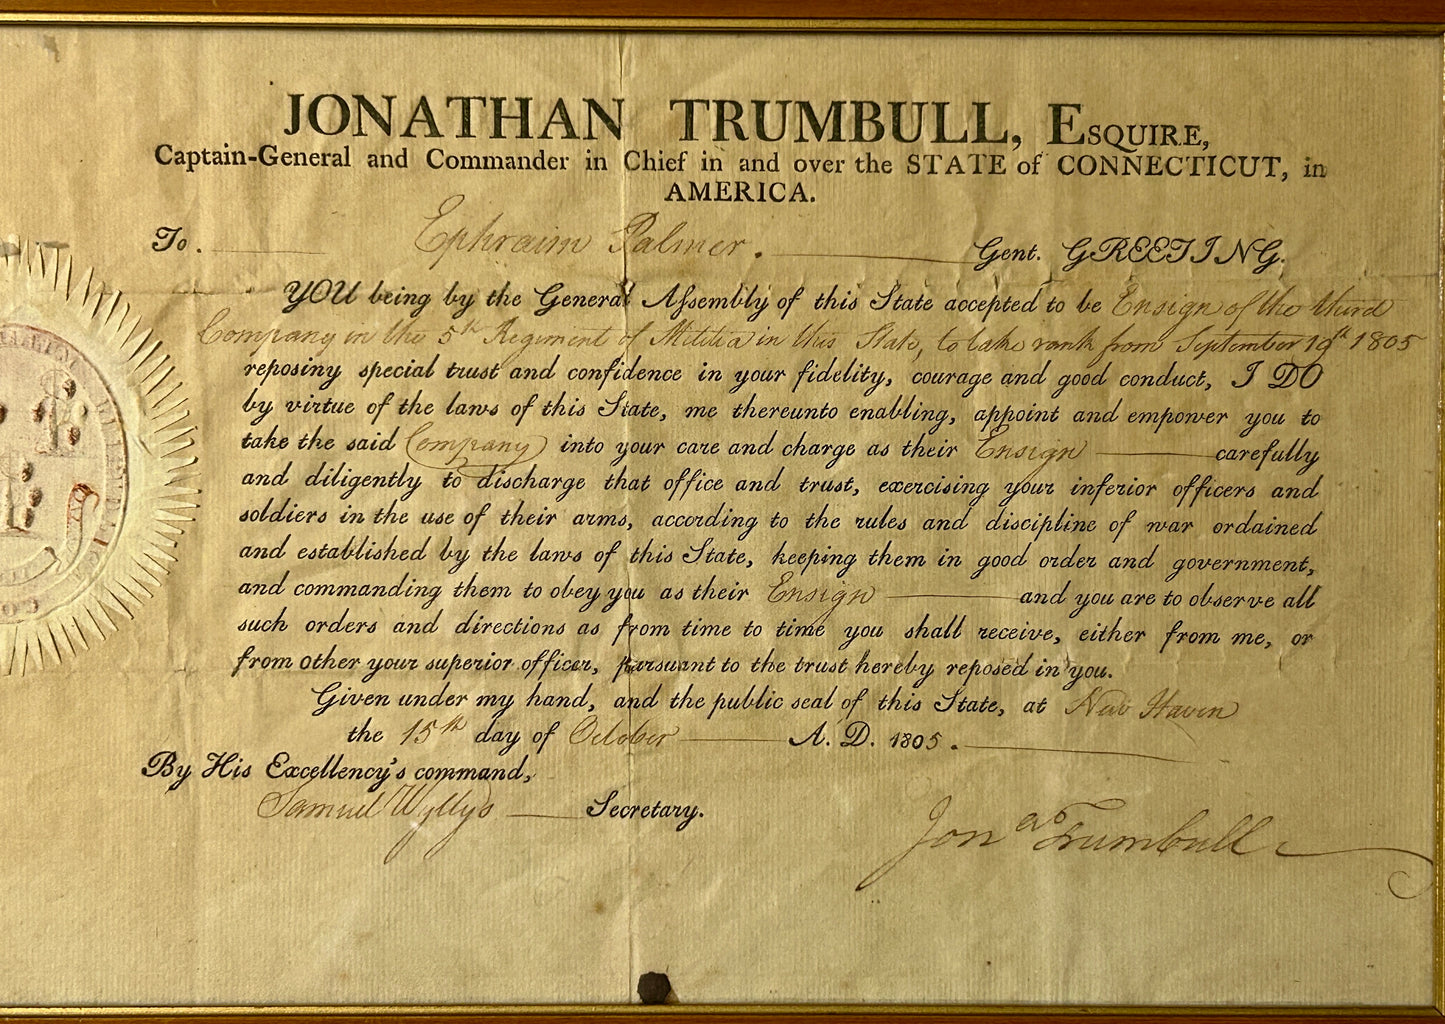 JONATHAN TRUMBULL, ESQUIRE,
Captain-General and Commander in Chief in and over the STATE of CONNECTICUT, in
AMERICA.
To. Ephraim Palmer. Gent. GREETING.
YOU being by the General Assembly of this State accepted to be Ensign of the third
Company in the 5th Regiment of Militia in this State, to take rank from September 19th 1805
reposing special trust and confidence in your fidelity, courage and good conduct, I DO
by virtue of the laws of this State, me thereunto enabling, appoint and empower you to
take the said Company into your care and charge as their Ensign carefully
and diligently to discharge that office and trust, exercising your inferior officers and
soldiers in the use of their arms, according to the rules and discipline of war ordained
and established by the laws of this State, keeping them in good order and government,
and commanding them to obey you as their Ensign and you are to observe all
such orders and directions as from time to time you shall receive, either from me, or
from other your superior officer, pursuant to the trust hereby reposed in you.
Given under my hand, and the public seal of this State, at New Haven
the 15th day of October A. D. 1805.
By His Excellency's command,
Samuel Wyllys Secretary.
Jona Trumbull